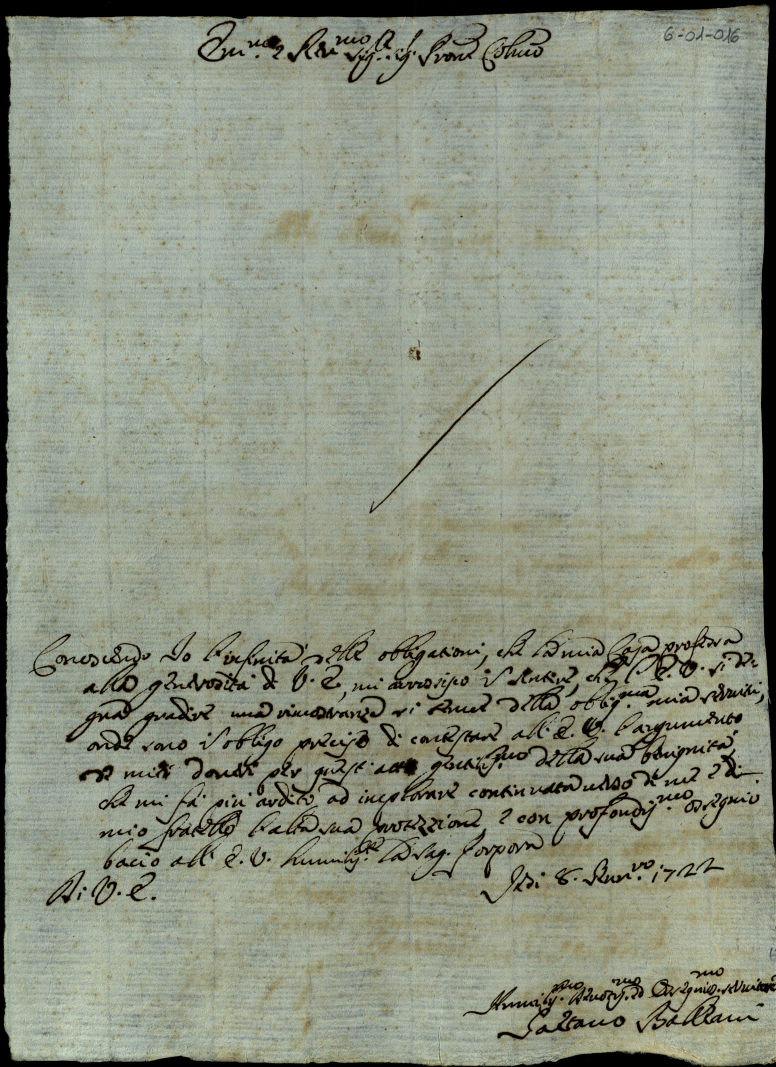 6-01-016
Em.mo e Re.mo Sig.r Sig. Pron.e Col.mo
Conoscendo Io l'infinità delle obbligationi, che la mia Casa professa
alla generosità di V. E., mi arrossisco in sentire, che l'E. V. si de-
gna gradire una rimostranza sì tenue della oblig.ma mia servitù,
onde sono in obligo preciso di contestare all'E. V. l'argumento
de miei doveri per quest'atto gentiliss.mo della sua benignità,
che mi fà più ardito ad implorare continuata verso di me e di
mio fratello l'alta sua protezzione e con profondiss.mo ossequio
bacio all'E. V. humiliss.te la sag. Porpora
Di V. E.
Jesi 8. 1722
Humiliss.mo Devotiss.mo ed Osseq.mo servitore
Gaetano Ballani